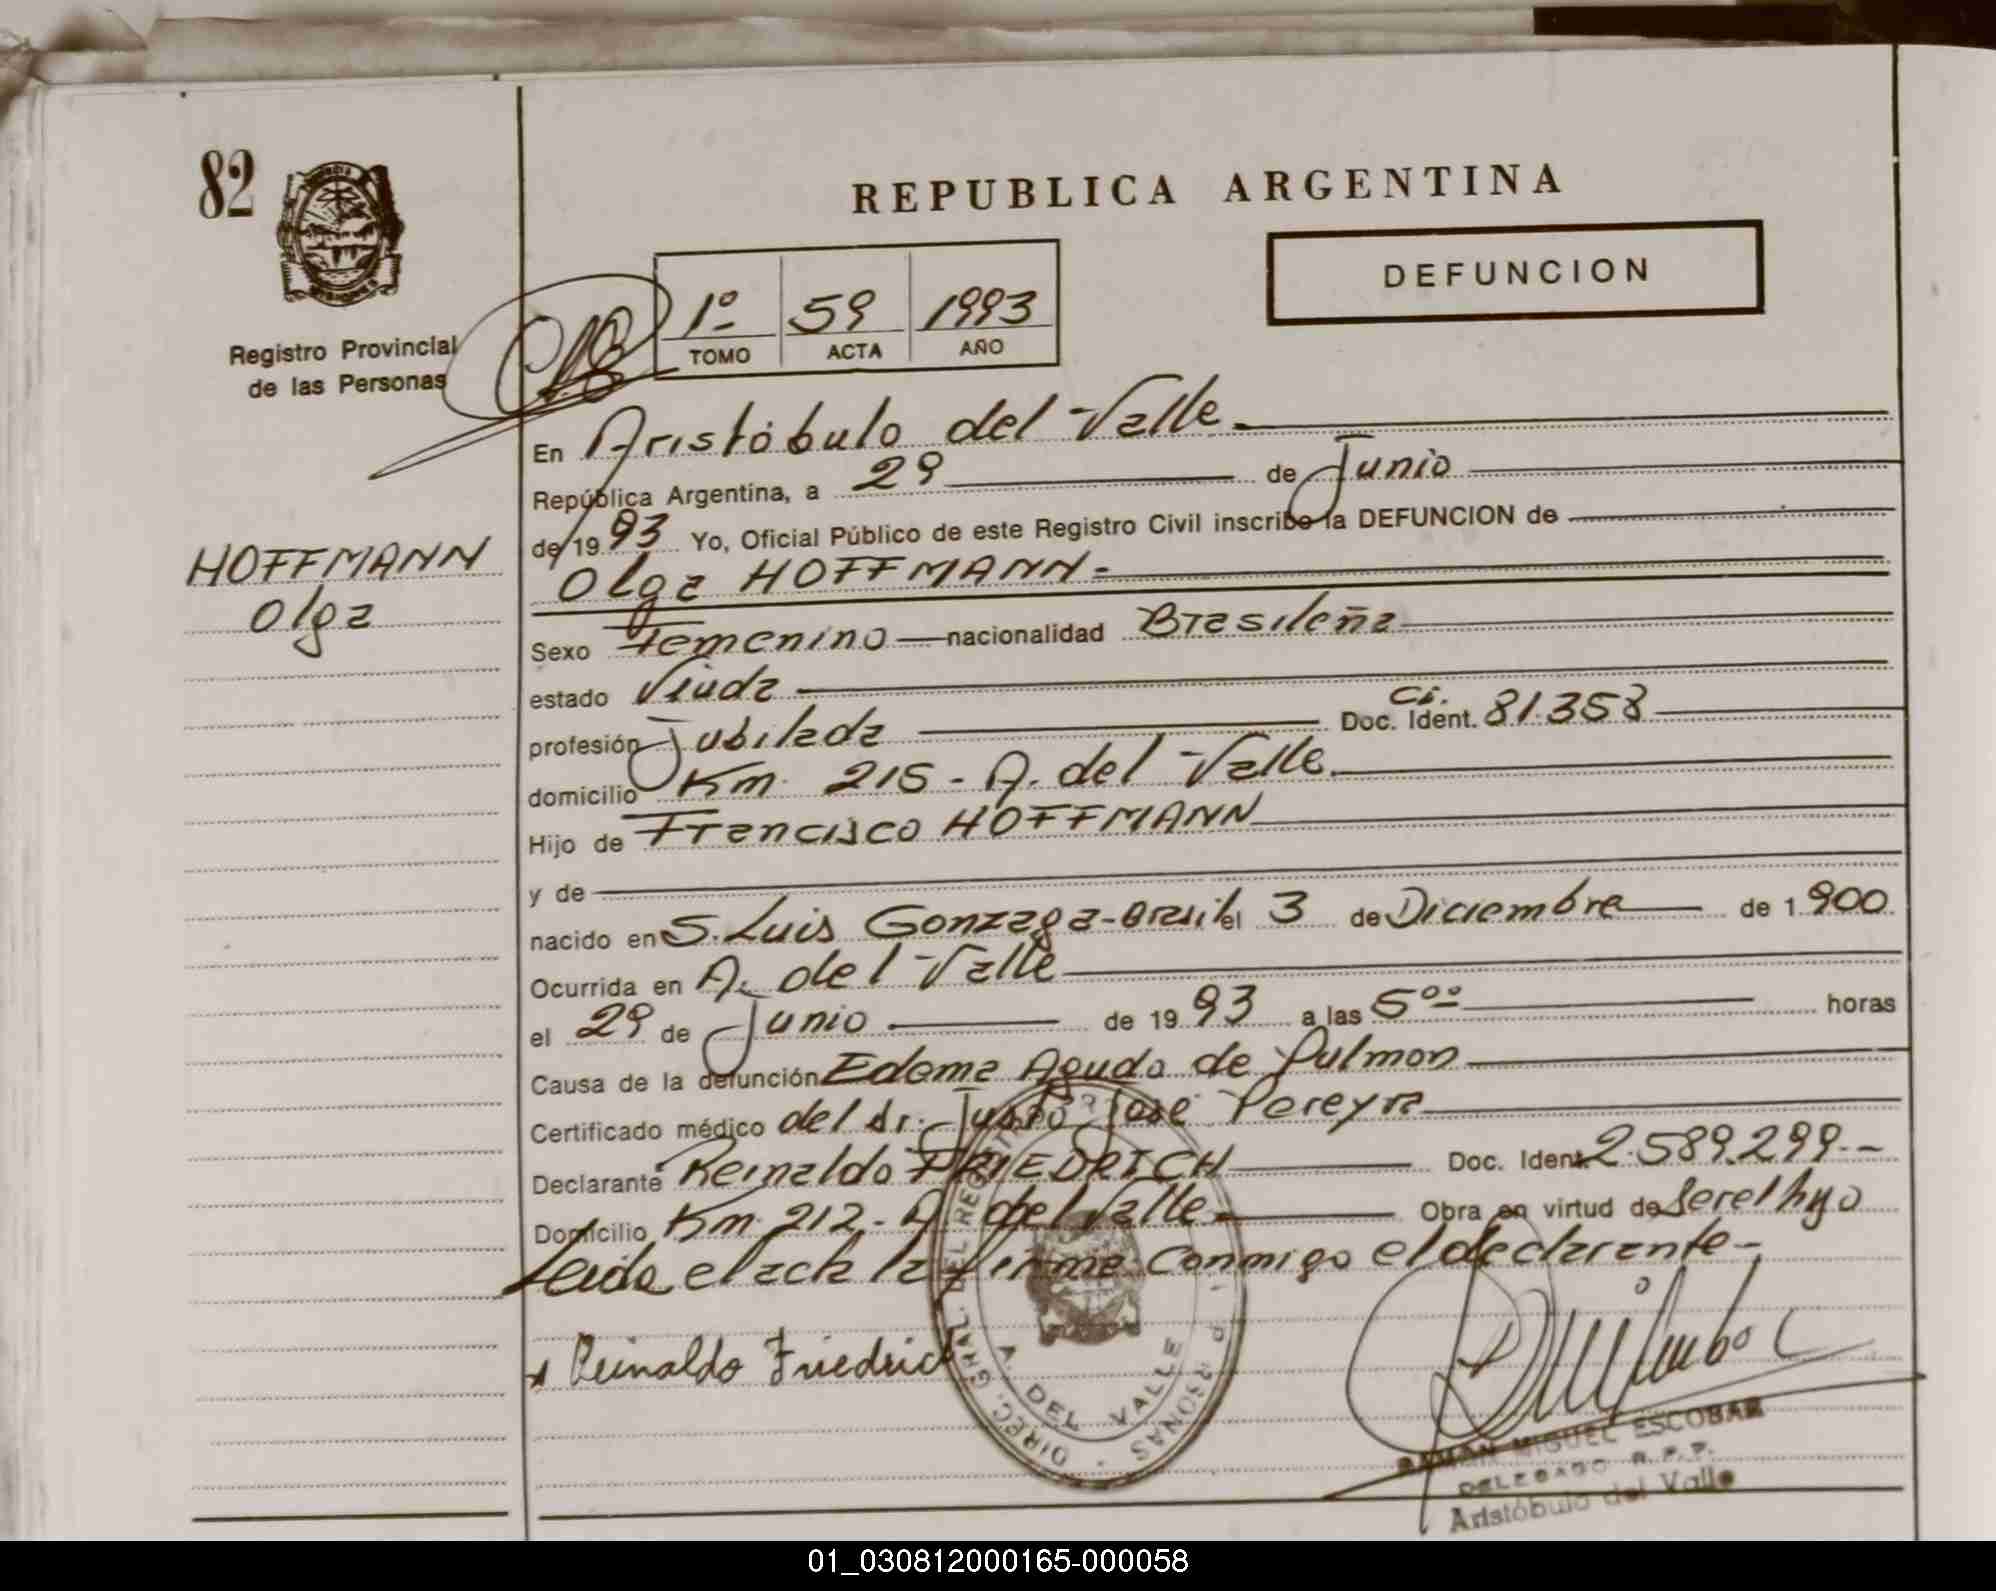 82
REPUBLICA ARGENTINA
DEFUNCION
Registro Provincial
de las Personas
1º 59 1993
TOMO ACTA AÑO
HOFFMANN
Olga
En Aristóbulo del Valle
República Argentina, a 29 de Junio
de 1993 Yo, Oficial Público de este Registro Civil inscribo la DEFUNCION de
Olga HOFFMANN-
Sexo Femenino nacionalidad Brasileña
estado Viuda
profesión Jubilada Ci. Doc. Ident. 81.358
domicilio Km. 215 - A. del Valle
Hijo de Francisco HOFFMANN
y de
nacido en S. Luis Gonzaga-Brasil el 3 de Diciembre de 1.900
Ocurrida en A. del Valle
el 29 de Junio de 1993 a las 5ºº horas
Causa de la defunción Edema Agudo de Pulmon
Certificado médico del dr. Justo José Pereyra
Declarante Reinaldo FRIEDRICH Doc. Ident. 2.589.299.-
Domicilio Km. 212 - A. del Valle Obra en virtud de ser el hijo
Leida el acta la firma conmigo el declarante-
x Reinaldo Friedrich
DIREC. GRAL. DEL REGISTRO P. PERSONAS
A. DEL VALLE
RAMON MIGUEL ESCOBAR
DELEGADO R.P.P.
Aristóbulo del Valle
01_030812000165-000058